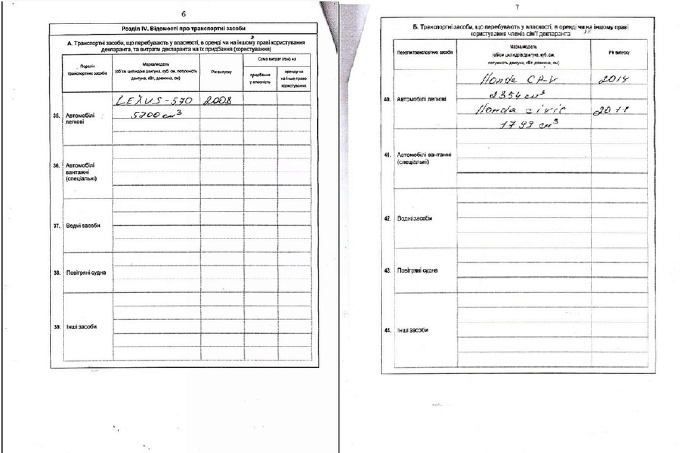 6
Розділ IV. Відомості про транспортні засоби
А. Транспортні засоби, що перебувають у власності, в оренді чи на іншому праві користування
декларанта, та витрати декларанта на їх придбання (користування)
Перелік
транспортних засобів
Марка/модель
(об'єм циліндрів двигуна, куб. см, потужність
двигуна, кВт, довжина, см)
Рік випуску
Сума витрат (грн) на
придбання
у власність
оренду чи
на інше право
користування
35. Автомобілі
легкові
LEXUS-570 2008
5700 см³
36. Автомобілі
вантажні
(спеціальні)
37. Водні засоби
38. Повітряні судна
39. Інші засоби
7
Б. Транспортні засоби, що перебувають у власності, в оренді чи на іншому праві
користування членів сім'ї декларанта
Перелік транспортних засобів
Марка/модель
(об'єм циліндрів двигуна, куб. см,
потужність двигуна, кВт, довжина, см)
Рік випуску
40. Автомобілі легкові
Honda CR-V 2014
2354 см³
Honda civic 2011
1799 см³
41. Автомобілі вантажні
(спеціальні)
42. Водні засоби
43. Повітряні судна
44. Інші засоби